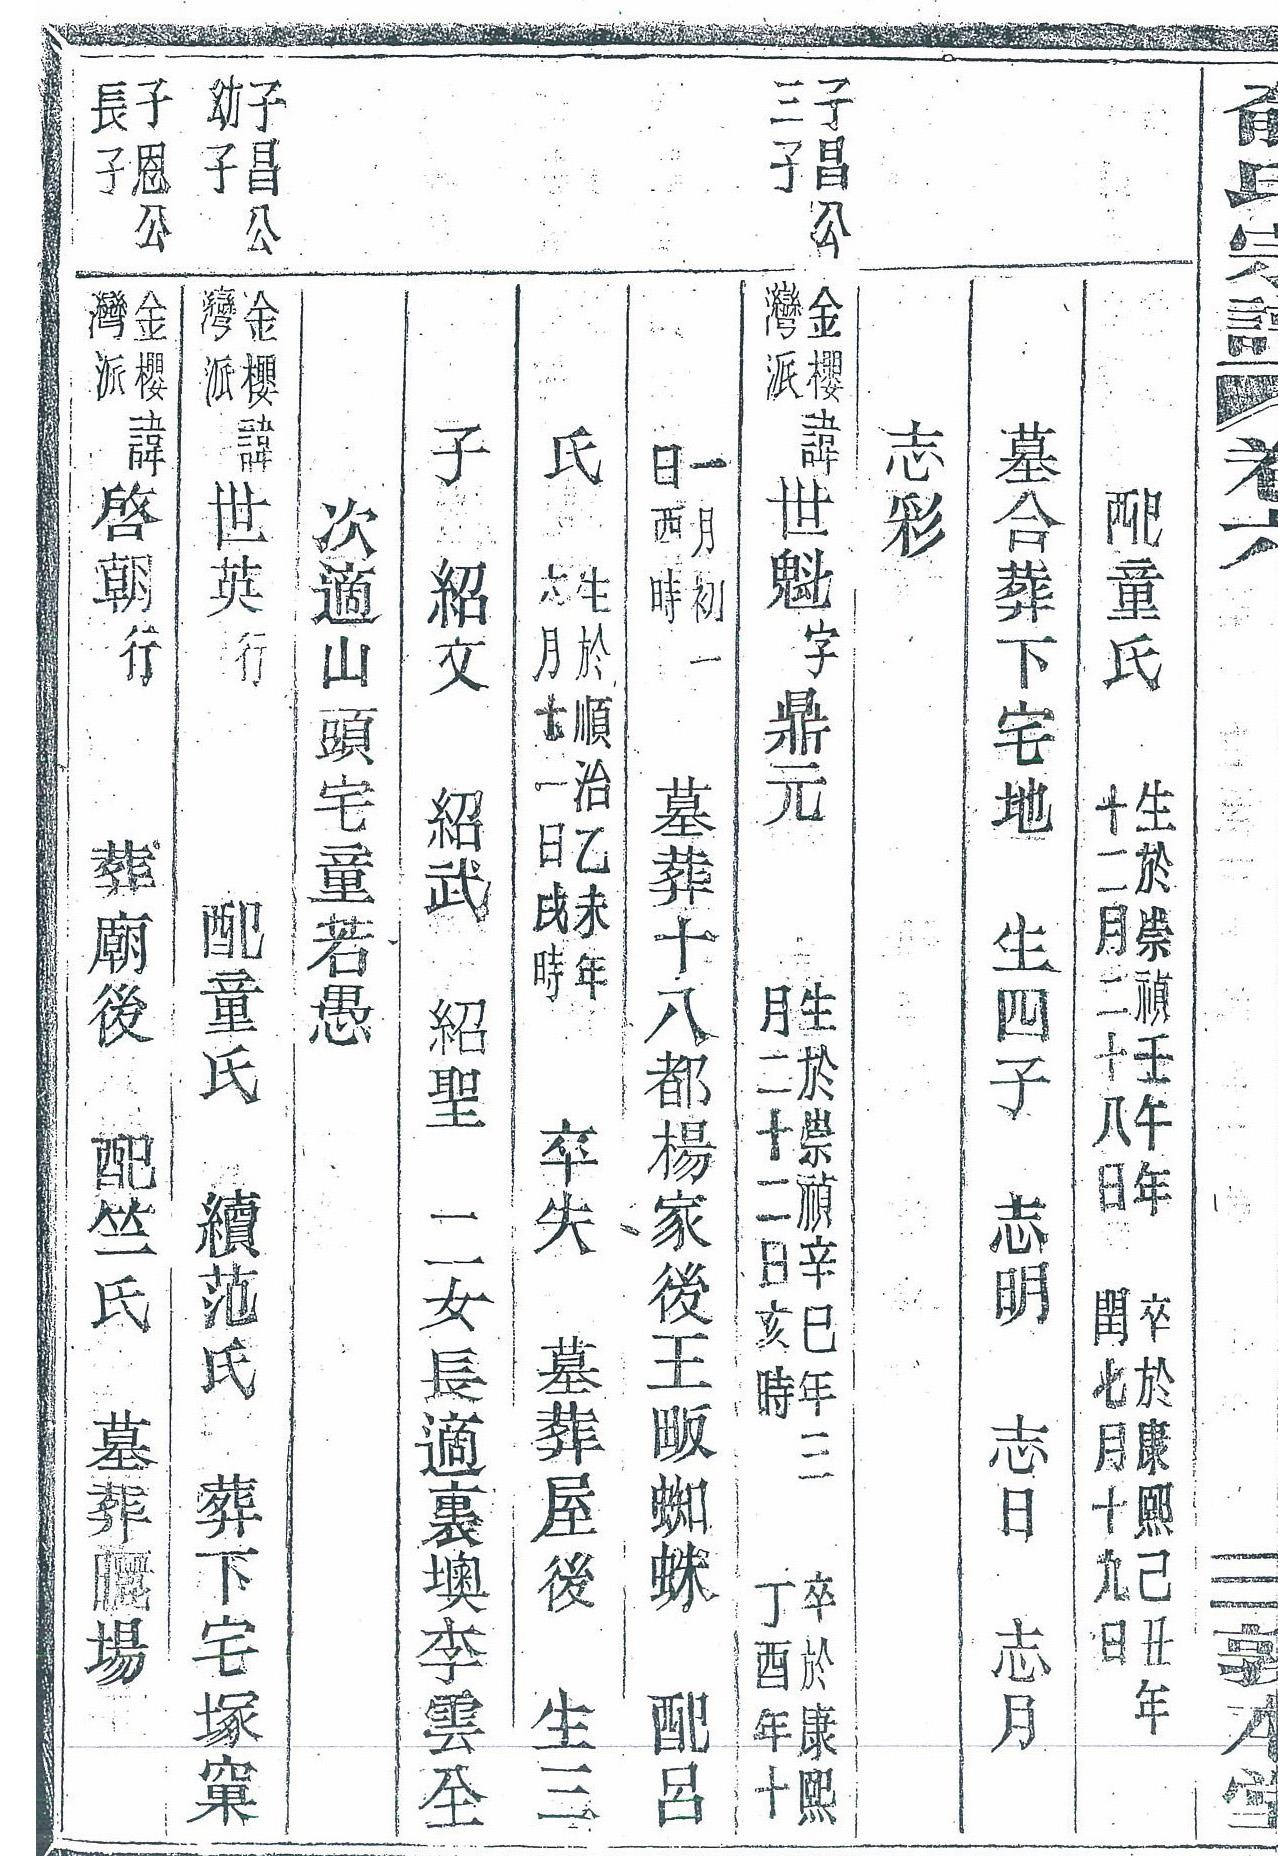 俞氏宗譜 卷六 敦本堂
配童氏 生於崇禎壬午年十二月二十八日 卒於康熙己丑年閏七月十九日
墓合葬下宅地 生四子 志明 志日 志月
志彩
子昌公三子 金櫻灣派 諱世魁字鼎元 生於崇禎辛巳年三月二十二日亥時 卒於康熙丁酉年十
一月初一日酉時 墓葬十八都楊家後王畈蜘蛛 配呂
氏 生於順治乙未年六月廿一日戌時 卒失 墓葬屋後 生三
子 紹文 紹武 紹聖 二女長適裏墺李雲全
次適山頭宅童若愚
子昌公幼子 金櫻灣派 諱世英行 配童氏 續范氏 葬下宅塚窠
子恩公長子 金櫻灣派 諱啓朝行 葬廟後 配竺氏 墓葬曬場